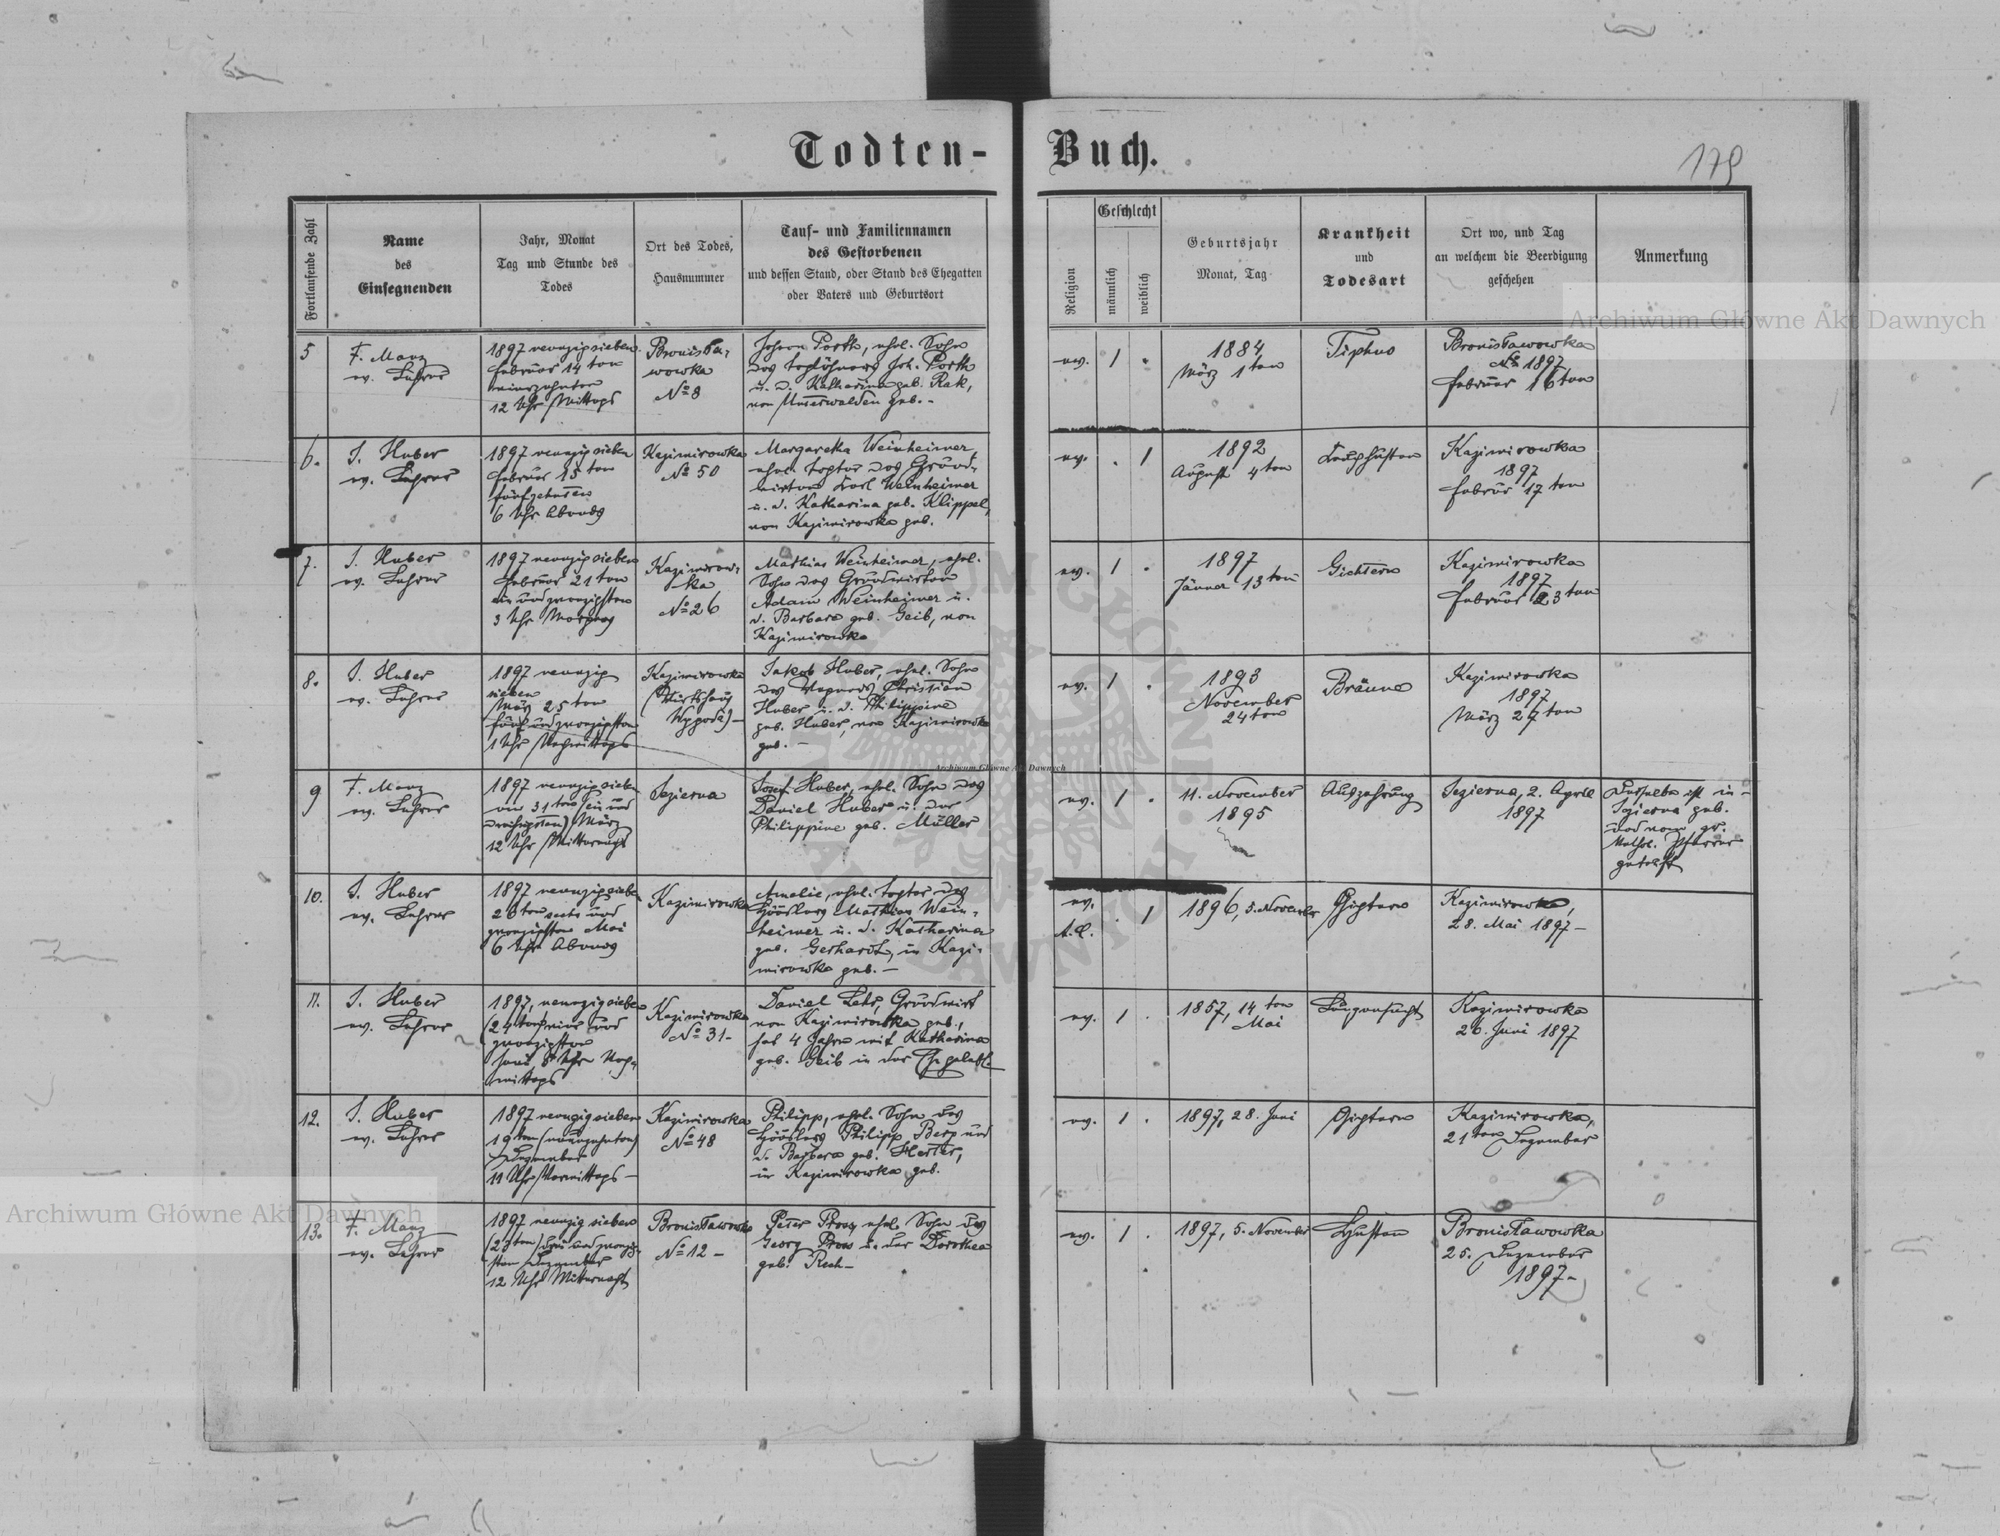 Todten-Buch.
179
Fortlaufende Zahl
Name
des
Einsegnenden
Jahr, Monat
Tag und Stunde des
Todes
Ort des Todes,
Hausnummer
Tauf- und Familiennamen
des Gestorbenen
und dessen Stand, oder Stand des Ehegatten
oder Vaters und Geburtsort
Religion
Geschlecht
männlich
weiblich
Geburtsjahr
Monat, Tag
Krankheit
und
Todesart
Ort wo, und Tag
an welchem die Beerdigung
geschehen
Anmerkung
5
F. Manz
ev. Lehrer
1897 neunzig sieben
Februar 14ten
vierzehnten
12 Uhr Mittags
Bronisła-
wowka
No 8
Johann Porth, ehel. Sohn
des Taglöhners Joh. Porth
u. d. Katharina geb. Rak,
von Unterwalden geb. -
ev.
1
.
1884
März 1ten
Tiphus
Bronisławowka
1897
Februar 16ten
6.
J. Huber
ev. Lehrer
1897 neunzig sieben
Februar 15ten
fünfzehnten
6 Uhr Abends
Kazimirowka
No 50
Margaretha Weinheimer,
ehel. Tochter des Grund-
wirten Karl Weinheimer
u. d. Katharina geb. Klippel,
von Kazimirowka geb.
ev.
.
1
1892
August 4ten
Keuchhusten
Kazimirowka
1897
Februar 17ten
7.
J. Huber
ev. Lehrer
1897 neunzig sieben
Februar 21ten
ein und zwanzigsten
3 Uhr Morgens
Kazimirow-
ka
No 26
Mathias Weinheimer, ehel.
Sohn des Grundwirten
Adam Weinheimer u.
d. Barbara geb. Geib, von
Kazimirowka
ev.
1
.
1897
Jänner 13ten
Gichtern
Kazimirowka
1897
Februar 23ten
8.
J. Huber
ev. Lehrer
1897 neunzig
sieben
März 25ten
fünf und zwanzigsten
1 Uhr Nachmittags
Kazimirowka
(Wirtshaus
Wygoda) -
Jakob Huber, ehel. Sohn
des Wagners Christian
Huber u. d. Philippine
geb. Huber, von Kazimirowka
geb. -
ev.
1
.
1893
November
24ten
Bräune
Kazimirowka
1897
März 27ten
9
F. Manz
ev. Lehrer
1897 neunzig sieben
31ten (ein und
dreißigsten) März
12 Uhr Mitternachts
Jezierna
Josef Huber, ehel. Sohn des
Daniel Huber u. der
Philippine geb. Müller
ev.
1
.
11. November
1895
Auszehrung
Jezierna, 2. April
1897
Derselbe ist in -
Jezierna geb.
und vom gr.
Kathol. Pfarrer
getauft
10.
J. Huber
ev. Lehrer
1897 neunzig sieben
26ten sechs und
zwanzigsten Mai
6 Uhr Abends
Kazimirowka
Amalie, ehel. Tochter des
Häuslers Mathias Wein-
heimer u. d. Katharina
geb. Gerhardt, in Kazi-
mirowka geb. -
ev.
A.C.
.
1
1896, 5. November
Gichtern
Kazimirowka,
28. Mai 1897 -
11.
J. Huber
ev. Lehrer
1897, neunzig sieben
(24ten) vier und
zwanzigsten
Juni 5 Uhr Nach-
mittags
Kazimirowka
No 31 -
Daniel Lehr, Grundwirt
von Kazimirowka geb.,
hat 4 Jahre mit Katharina
geb. Geib in der Ehe gelebt. -
ev.
1
.
1857, 14ten
Mai
Lungensucht
Kazimirowka
26. Juni 1897
12.
J. Huber
ev. Lehrer
1897 neunzig sieben
19ten (neunzehnten)
Dezember
11 Uhr Vormittags -
Kazimirowka
No 48
Philipp, ehel. Sohn des
Häuslers Philipp Berg und
d. Barbara geb. Herter,
in Kazimirowka geb.
ev.
1
.
1897, 28. Juni
Gichtern
Kazimirowka,
21ten Dezember
13.
F. Manz
ev. Lehrer
1897 neunzig sieben
(23ten) drei und zwanzig-
sten Dezember
12 Uhr Mitternacht
Bronisławowka
No 12 -
Peter Pross, ehel. Sohn des
Georg Pross u. der Dorothea
geb. Rech -
ev.
1
.
1897, 5. November
Husten
Bronisławowka
25. Dezember
1897 -
Archiwum Główne Akt Dawnych
Archiwum Główne Akt Dawnych
Archiwum Główne Akt Dawnych